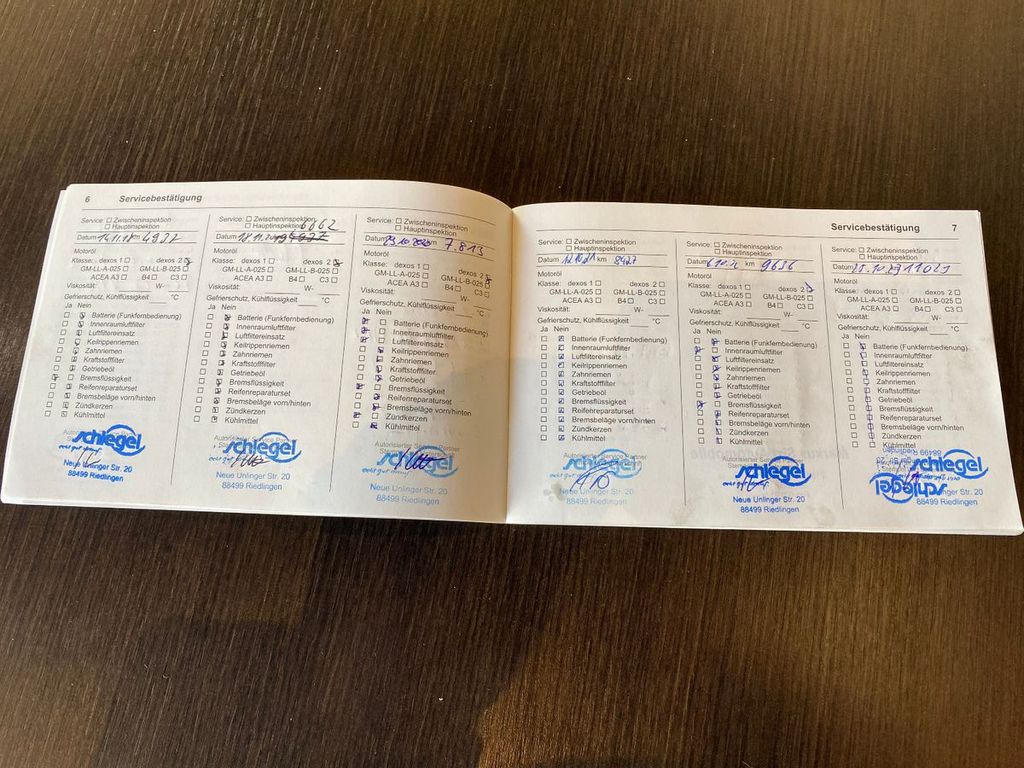 6 Servicebestätigung
Service: ☐ Zwischeninspektion
☐ Hauptinspektion
Datum 14.11.18 km 4932
Motoröl
Klasse: dexos 1 ☐ dexos 2 ☒
GM-LL-A-025 ☐ GM-LL-B-025 ☐
ACEA A3 ☐ B4 ☐ C3 ☐
Viskosität: W-
Gefrierschutz, Kühlflüssigkeit °C
Ja Nein
Batterie (Funkfernbedienung)
Innenraumluftfilter
Luftfiltereinsatz
Keilrippenriemen
Zahnriemen
Kraftstofffilter
Getriebeöl
Bremsflüssigkeit
Reifenreparaturset
Bremsbeläge vorn/hinten
Zündkerzen
Kühlmittel
schlegel
Neue Unlinger Str. 20
88499 Riedlingen
Service: ☐ Zwischeninspektion
☐ Hauptinspektion
6662
Datum 18.11.
Motoröl
Klasse: dexos 1 ☐ dexos 2 ☒
GM-LL-A-025 ☐ GM-LL-B-025 ☐
ACEA A3 ☐ B4 ☐ C3 ☐
Viskosität: W-
Gefrierschutz, Kühlflüssigkeit °C
Ja Nein
Batterie (Funkfernbedienung)
Innenraumluftfilter
Luftfiltereinsatz
Keilrippenriemen
Zahnriemen
Kraftstofffilter
Getriebeöl
Bremsflüssigkeit
Reifenreparaturset
Bremsbeläge vorn/hinten
Zündkerzen
Kühlmittel
Autorisierter Service Partner
schlegel
Neue Unlinger Str. 20
88499 Riedlingen
Service: ☐ Zwischeninspektion
☐ Hauptinspektion
Datum km 7.813
Motoröl
Klasse: dexos 1 ☐ dexos 2 ☒
GM-LL-A-025 ☐ GM-LL-B-025
ACEA A3 ☐ B4 ☐ C3 ☐
Viskosität: W-
Gefrierschutz, Kühlflüssigkeit °C
Ja Nein
Batterie (Funkfernbedienung)
Innenraumluftfilter
Luftfiltereinsatz
Keilrippenriemen
Zahnriemen
Kraftstofffilter
Getriebeöl
Bremsflüssigkeit
Reifenreparaturset
Bremsbeläge vorn/hinten
Zündkerzen
Kühlmittel
Autorisierter Service Partner
schlegel
Neue Unlinger Str. 20
88499 Riedlingen
Servicebestätigung 7
Service: ☐ Zwischeninspektion
☐ Hauptinspektion
Datum 12.10.21 km 8427
Motoröl
Klasse: dexos 1 ☐ dexos 2 ☐
GM-LL-A-025 ☐ GM-LL-B-025 ☐
ACEA A3 ☐ B4 ☐ C3 ☐
Viskosität: W-
Gefrierschutz, Kühlflüssigkeit °C
Ja Nein
Batterie (Funkfernbedienung)
Innenraumluftfilter
Luftfiltereinsatz
Keilrippenriemen
Zahnriemen
Kraftstofffilter
Getriebeöl
Bremsflüssigkeit
Reifenreparaturset
Bremsbeläge vorn/hinten
Zündkerzen
Kühlmittel
Autorisierter Service Partner
schlegel
Neue Unlinger Str. 20
88499 Riedlingen
Service: ☐ Zwischeninspektion
☐ Hauptinspektion
Datum km 9656
Motoröl
Klasse: dexos 1 ☐ dexos 2
GM-LL-A-025 ☐ GM-LL-B-025 ☐
ACEA A3 ☐ B4 ☐ C3 ☐
Viskosität: W-
Gefrierschutz, Kühlflüssigkeit °C
Ja Nein
Batterie (Funkfernbedienung)
Innenraumluftfilter
Luftfiltereinsatz
Keilrippenriemen
Zahnriemen
Kraftstofffilter
Getriebeöl
Bremsflüssigkeit
Reifenreparaturset
Bremsbeläge vorn/hinten
Zündkerzen
Kühlmittel
schlegel
Neue Unlinger Str. 20
88499 Riedlingen
Service: ☐ Zwischeninspektion
☐ Hauptinspektion
Datum 11021
Motoröl
Klasse: dexos 1 ☐ dexos 2 ☐
GM-LL-A-025 ☐ GM-LL-B-025 ☐
ACEA A3 ☐ B4 ☐ C3 ☐
Viskosität: W-
Gefrierschutz, Kühlflüssigkeit °C
Ja Nein
Batterie (Funkfernbedienung)
Innenraumluftfilter
Luftfiltereinsatz
Keilrippenriemen
Zahnriemen
Kraftstofffilter
Getriebeöl
Bremsflüssigkeit
Reifenreparaturset
Bremsbeläge vorn/hinten
Zündkerzen
Kühlmittel
schlegel
schlegel
Neue Unlinger Str. 20
88499 Riedlingen